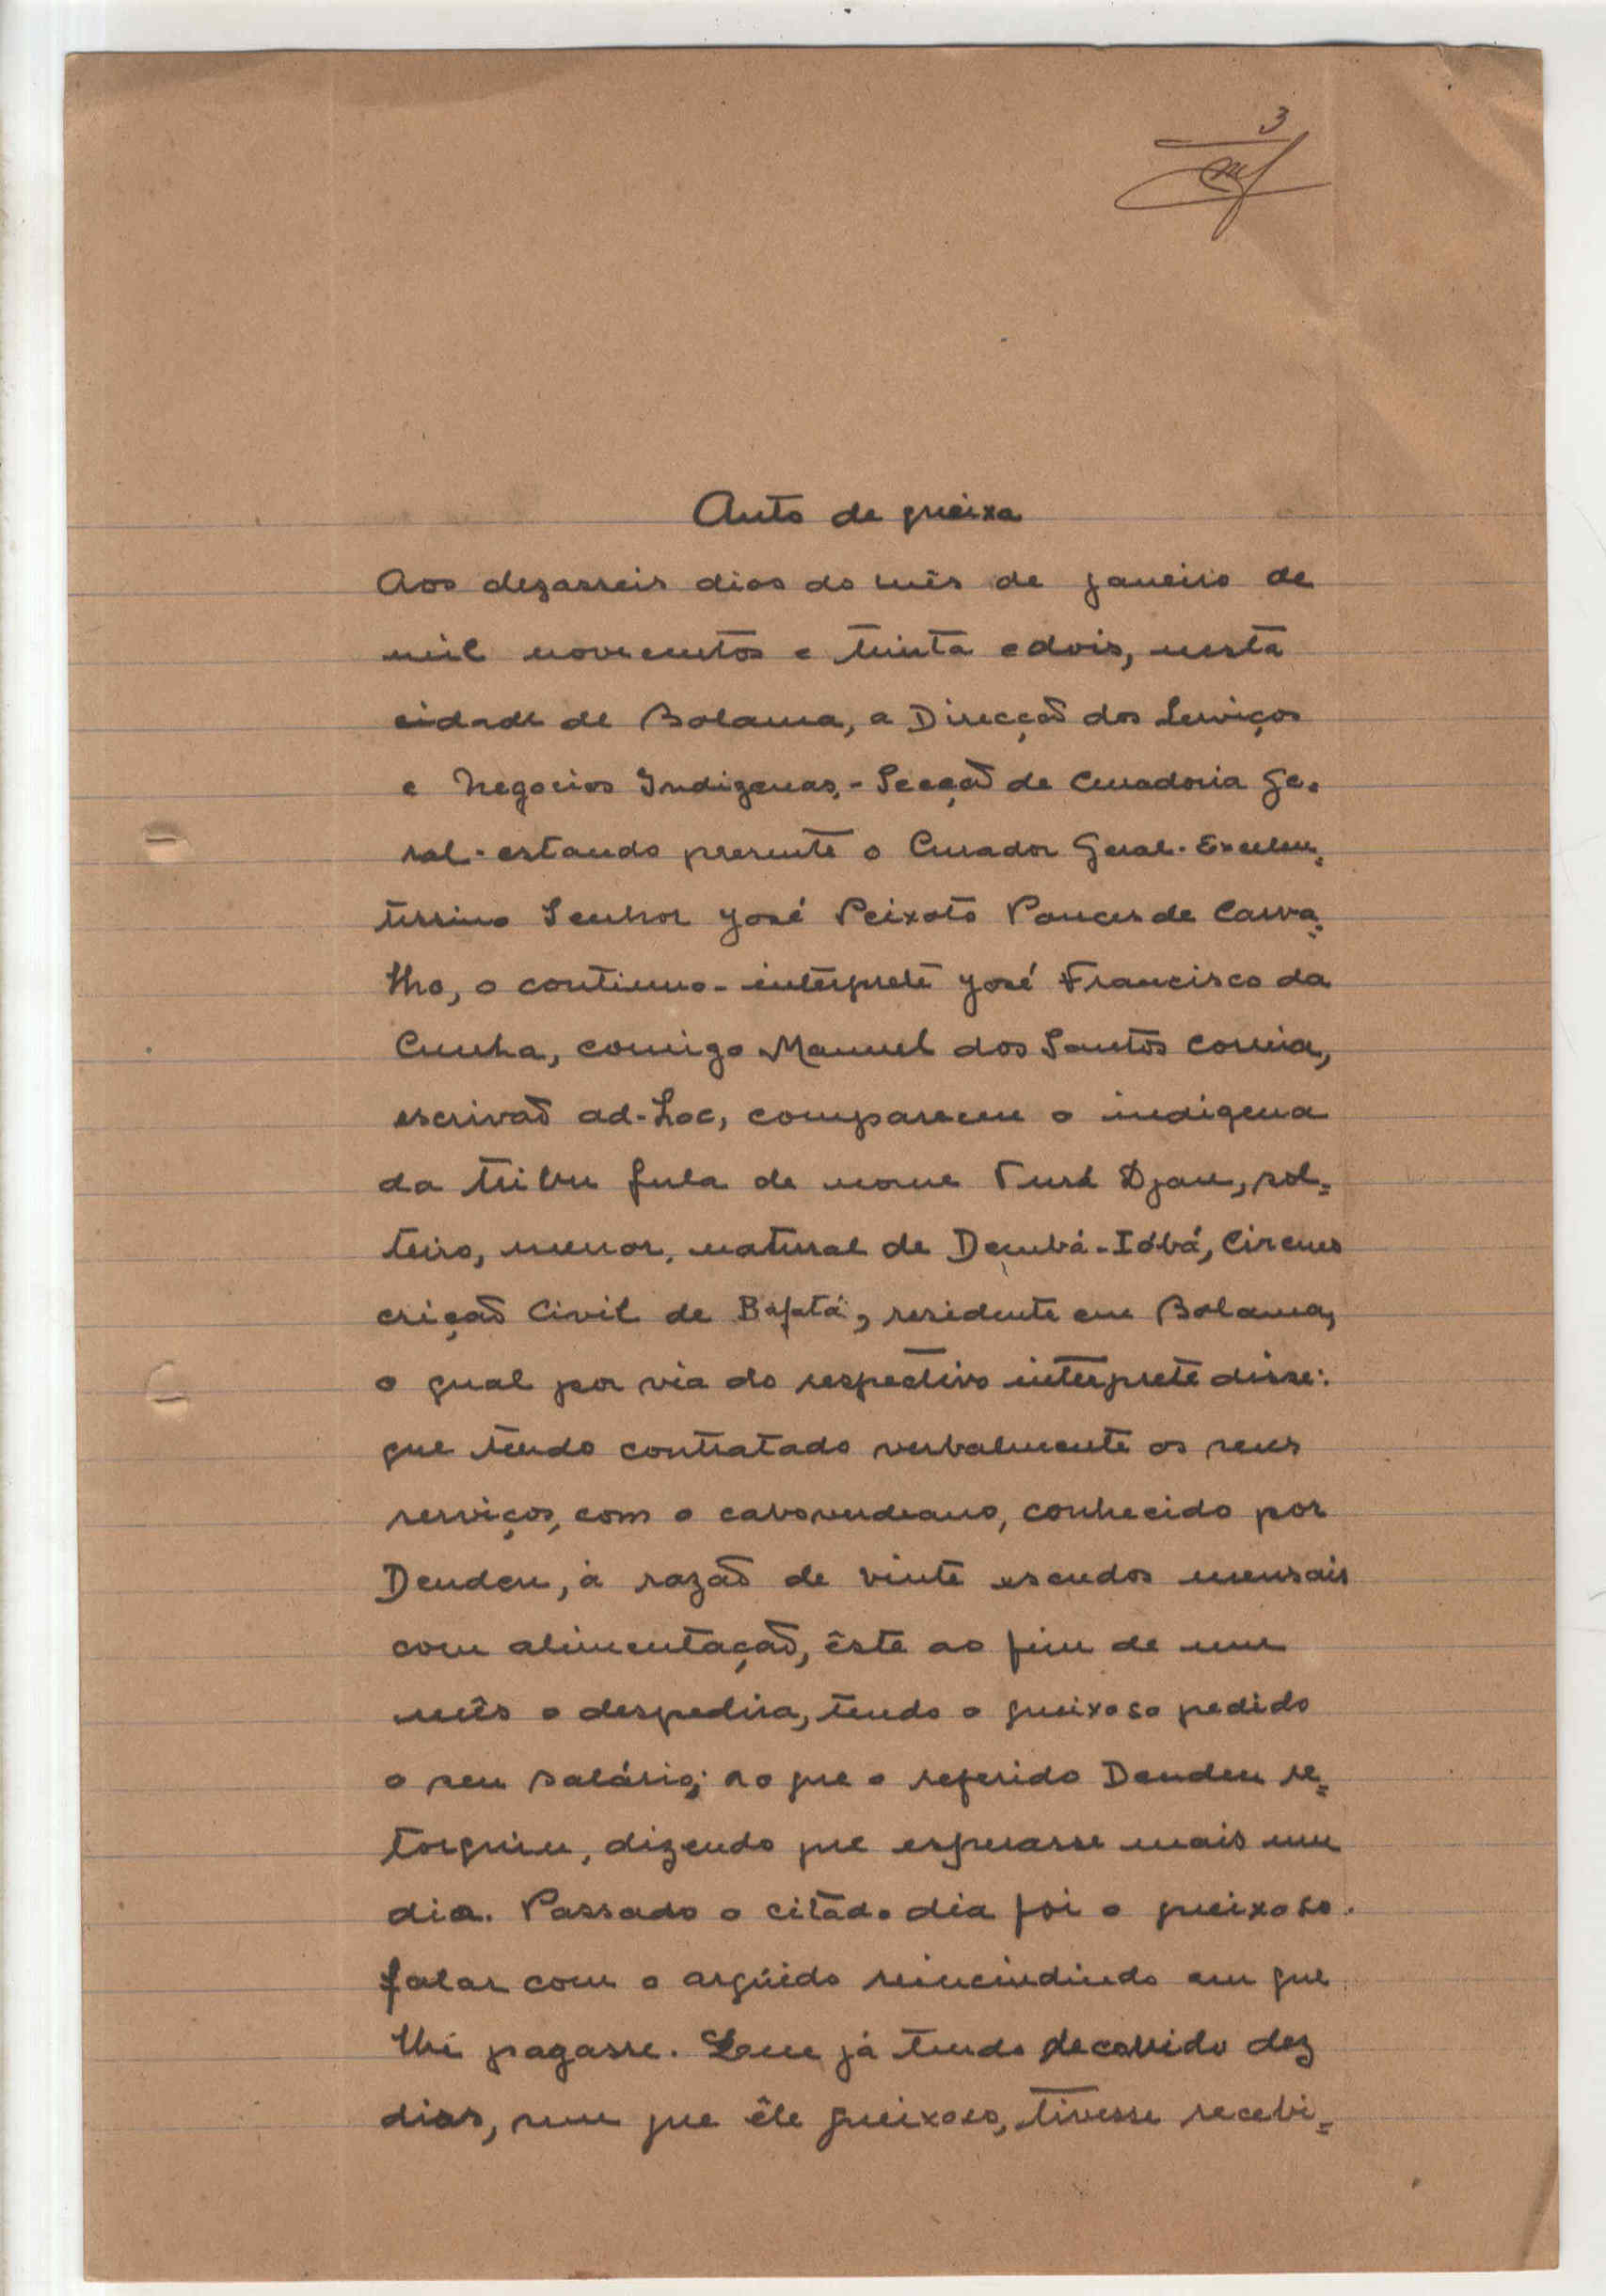 3
Auto de queixa
Aos dezasseis dias do mês de janeiro de
mil novecentos e trinta e dois, nesta
cidade de Bolama, a Direcção dos Serviços
e Negocios Indigenas,- Secção de Curadoria Ge-
ral - estando presente o Curador Geral - Excelen-
tissimo Senhor José Peixoto Ponces de Carva-
lho, o continuo-interprete José Francisco da
Cunha, comigo Manuel dos Santos Correia,
escrivão ad-hoc, compareceu o indigena
da tribu fula de nome Djau, sol-
teiro, menor, natural de Dembá-Ióbá, Circuns
crição Civil de Bafatá, residente em Bolama,
o qual por via do respectivo interprete disse:
que tendo contratado verbalmente os seus
serviços, com o caboverdeano, conhecido por
Dendeu, à razão de vinte escudos mensais
com alimentação, êste ao fim de um
mês o despedira, tendo o queixoso pedido
o seu salário; ao que o referido Dendeu re-
torquiu, dizendo que esperasse mais um
dia. Passado o citado dia foi o queixoso
falar com o argüido reincindindo em que
lhe pagasse. Que já tendo decorrido dez
dias, sem que êle queixoso, tivesse recebi-